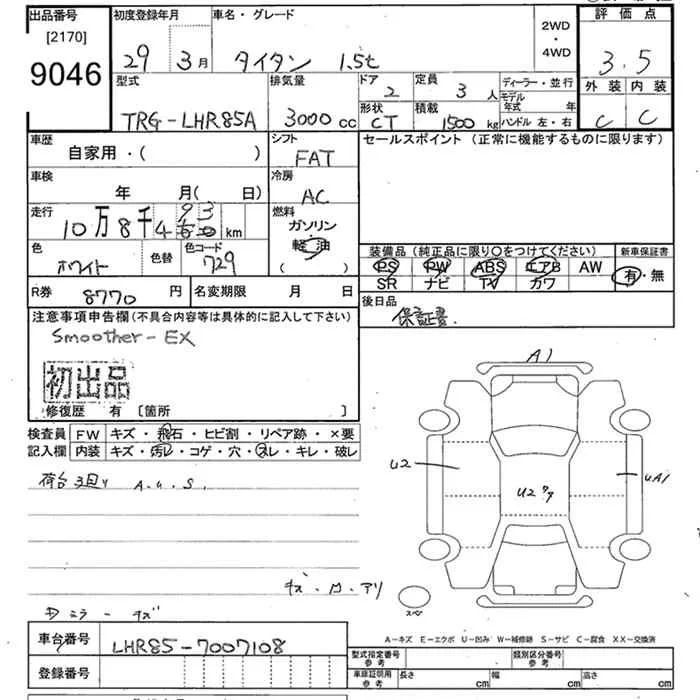 出品番号
[2170]
9046
初度登録年月
29 3月
車名・グレード
タイタン 1.5t
2WD
・
4WD
評価点
3.5
型式
TRG-LHR85A
排気量
3000cc
ドア
2
定員
3人
ディーラー・並行
モデル年式 年
ハンドル 左・右
外装 内装
C C
形状
CT
積載
1500kg
車歴
自家用・( )
シフト
FAT
セールスポイント (正常に機能するものに限ります)
車検
年 月( 日)
冷房
AC
走行
10万8千493km
燃料
ガソリン
軽油
( )
色
ホワイト
色替
色コード
729
装備品(純正品に限り○をつけてください)
PS PW ABS エアB AW
SR ナビ TV カワ
新車保証書
有・無
R券 8770円
名変期限 月 日
後日品
保証書.
注意事項申告欄(不具合内容等は具体的に記入して下さい)
Smoother-EX
初出品
修復歴 有 [箇所 ]
検査員 FW キズ・飛石・ヒビ割・リペア跡・×要
記入欄 内装 キズ・汚レ・コゲ・穴・スレ・キレ・破レ
荷台3回り A.U.S.
A1
U2
U2
UA1
スペ
A−キズ E−エクボ U−凹み W−補修跡 S−サビ C−腐食 XX−交換済
車台番号 LHR85-7007108
登録番号
型式指定番号
参考
類別区分番号
参考
車庫証明用
参考
長さ cm
幅 cm
高さ cm